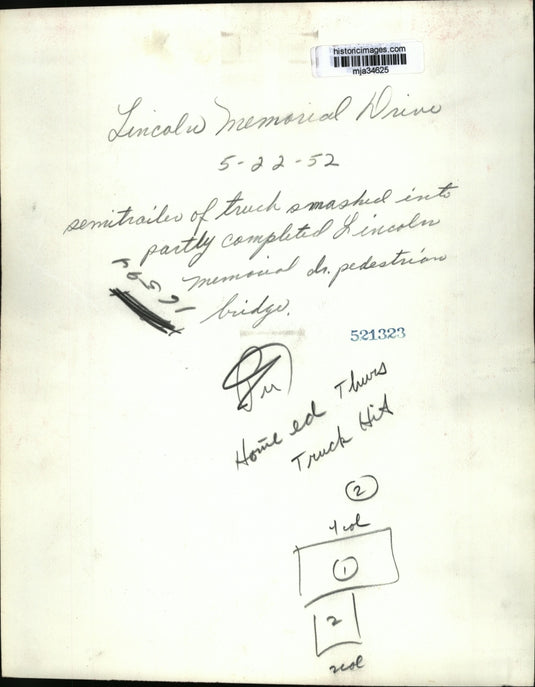 historicimages.com
mja34625
Lincoln Memorial Drive
5-22-52
semitrailer of truck smashed into
partly completed Lincoln
Memorial dr. pedestrian
bridge.
521323
Home ed Thurs
Truck Hit
2
4 col
1
2
2 col